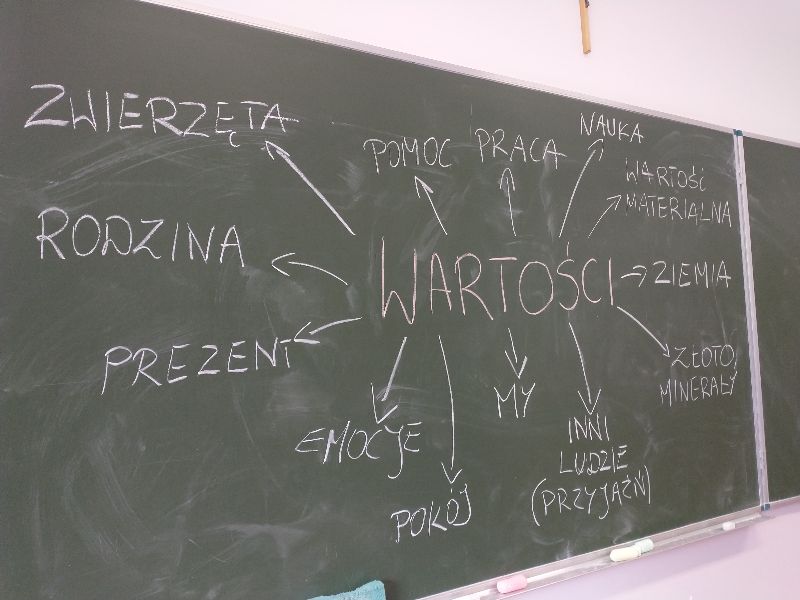 ZWIERZĘTA
POMOC
PRACA
NAUKA
WARTOŚĆ
MATERIALNA
RODZINA
WARTOŚCI
ZIEMIA
PREZENT
ZŁOTO,
MINERAŁY
EMOCJE
MY
INNI
LUDZIE
(PRZYJAŹŃ)
POKÓJ